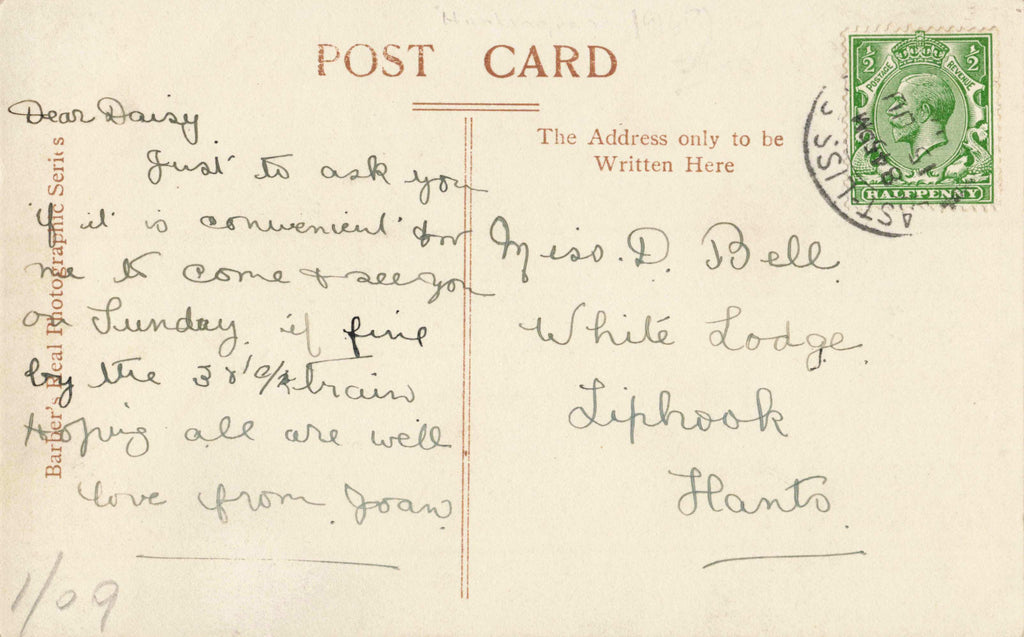 POST CARD
The Address only to be
Written Here
Barber's Real Photographic Series
Dear Daisy
Just to ask you
if it is convenient for
me to come & see you
on Sunday if fine
by the 3 train
Hoping all are well
love from Joan
Miss. D. Bell
White Lodge
Liphook
Hants
½ ½
POSTAGE REVENUE
HALFPENNY
AST LISS
1/09